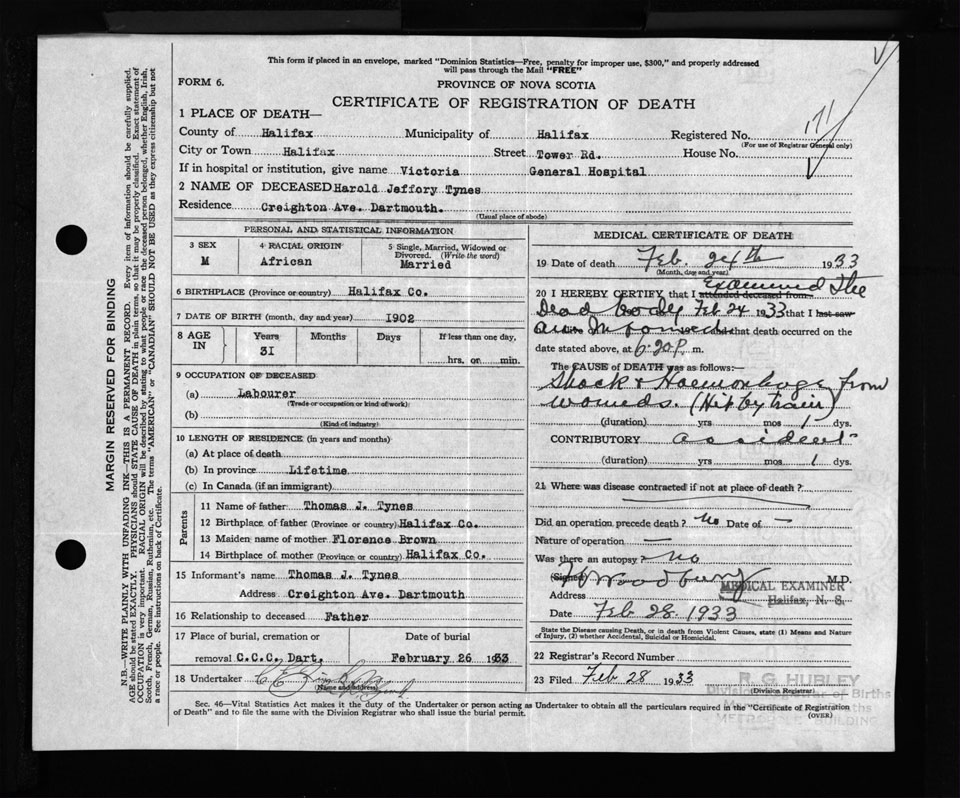 This form if placed in an envelope, marked "Dominion Statistics—Free, penalty for improper use, $300," and properly addressed
will pass through the Mail "FREE"
FORM 6.
PROVINCE OF NOVA SCOTIA
CERTIFICATE OF REGISTRATION OF DEATH
1 PLACE OF DEATH—
County of Halifax Municipality of Halifax Registered No.
(For use of Registrar General only)
171
City or Town Halifax Street Tower Rd. House No.
If in hospital or institution, give name Victoria General Hospital
2 NAME OF DECEASED Harold Jeffory Tynes
Residence Creighton Ave. Dartmouth.
(Usual place of abode)
PERSONAL AND STATISTICAL INFORMATION
3 SEX 4 RACIAL ORIGIN 5 Single, Married, Widowed or
Divorced. (Write the word)
M African Married
6 BIRTHPLACE (Province or country) Halifax Co.
7 DATE OF BIRTH (month, day and year) 1902
8 AGE IN Years Months Days If less than one day,
31 hrs. or min.
9 OCCUPATION OF DECEASED
(a) Labourer
(Trade or occupation or kind of work)
(b)
(Kind of industry)
10 LENGTH OF RESIDENCE (in years and months)
(a) At place of death
(b) In province Lifetime
(c) In Canada (if an immigrant)
Parents
11 Name of father Thomas J. Tynes
12 Birthplace of father (Province or country) Halifax Co.
13 Maiden name of mother Florence Brown
14 Birthplace of mother (Province or country) Halifax Co.
15 Informant's name Thomas J. Tynes
Address Creighton Ave. Dartmouth
16 Relationship to deceased Father
17 Place of burial, cremation or Date of burial
removal C.C.C. Dart. February 26 1933
18 Undertaker
(Name and address)
MEDICAL CERTIFICATE OF DEATH
19 Date of death Feb. 24th 1933
(Month, day and year)
Examined The
20 I HEREBY CERTIFY that I attended deceased from
Dead body Feb 24 1933 that I last saw
am Informed that death occurred on the
date stated above, at 6:20 P. m.
The CAUSE of DEATH was as follows:
Shock & Haemorrhage from
wounds. (Hit by train)
(duration) yrs mos 1 dys.
CONTRIBUTORY accident
(duration) yrs mos 1 dys.
21 Where was disease contracted if not at place of death?
Did an operation precede death? No Date of —
Nature of operation —
Was there an autopsy? No
(Signed) Woodbury M.D.
MEDICAL EXAMINER
Address Halifax, N. S.
Date Feb 28. 1933
State the Disease causing Death, or in death from Violent Causes, state (1) Means and Nature
of Injury, (2) whether Accidental, Suicidal or Homicidal.
22 Registrar's Record Number
23 Filed Feb 28 1933 R. G. HUBLEY
(Division Registrar)
Division Registrar of Births
BUILDING
Sec. 46—Vital Statistics Act makes it the duty of the Undertaker or person acting as Undertaker to obtain all the particulars required in the "Certificate of Registration
of Death" and to file the same with the Division Registrar who shall issue the burial permit.
(OVER)
MARGIN RESERVED FOR BINDING
N.B.—WRITE PLAINLY WITH UNFADING INK—THIS IS A PERMANENT RECORD. Every item of information should be carefully supplied.
AGE should be stated EXACTLY. PHYSICIANS should STATE CAUSE OF DEATH in plain terms, so that it may be properly classified. Exact statement of
OCCUPATION is very important. RACIAL ORIGIN will be described by stating to what people or race the deceased person belonged, whether English, Irish,
Scotch, French, German, Russian, Ruthenian, etc. The terms "AMERICAN" or "CANADIAN" SHOULD NOT BE USED as they express citizenship but not
a race or people. See instructions on back of Certificate.